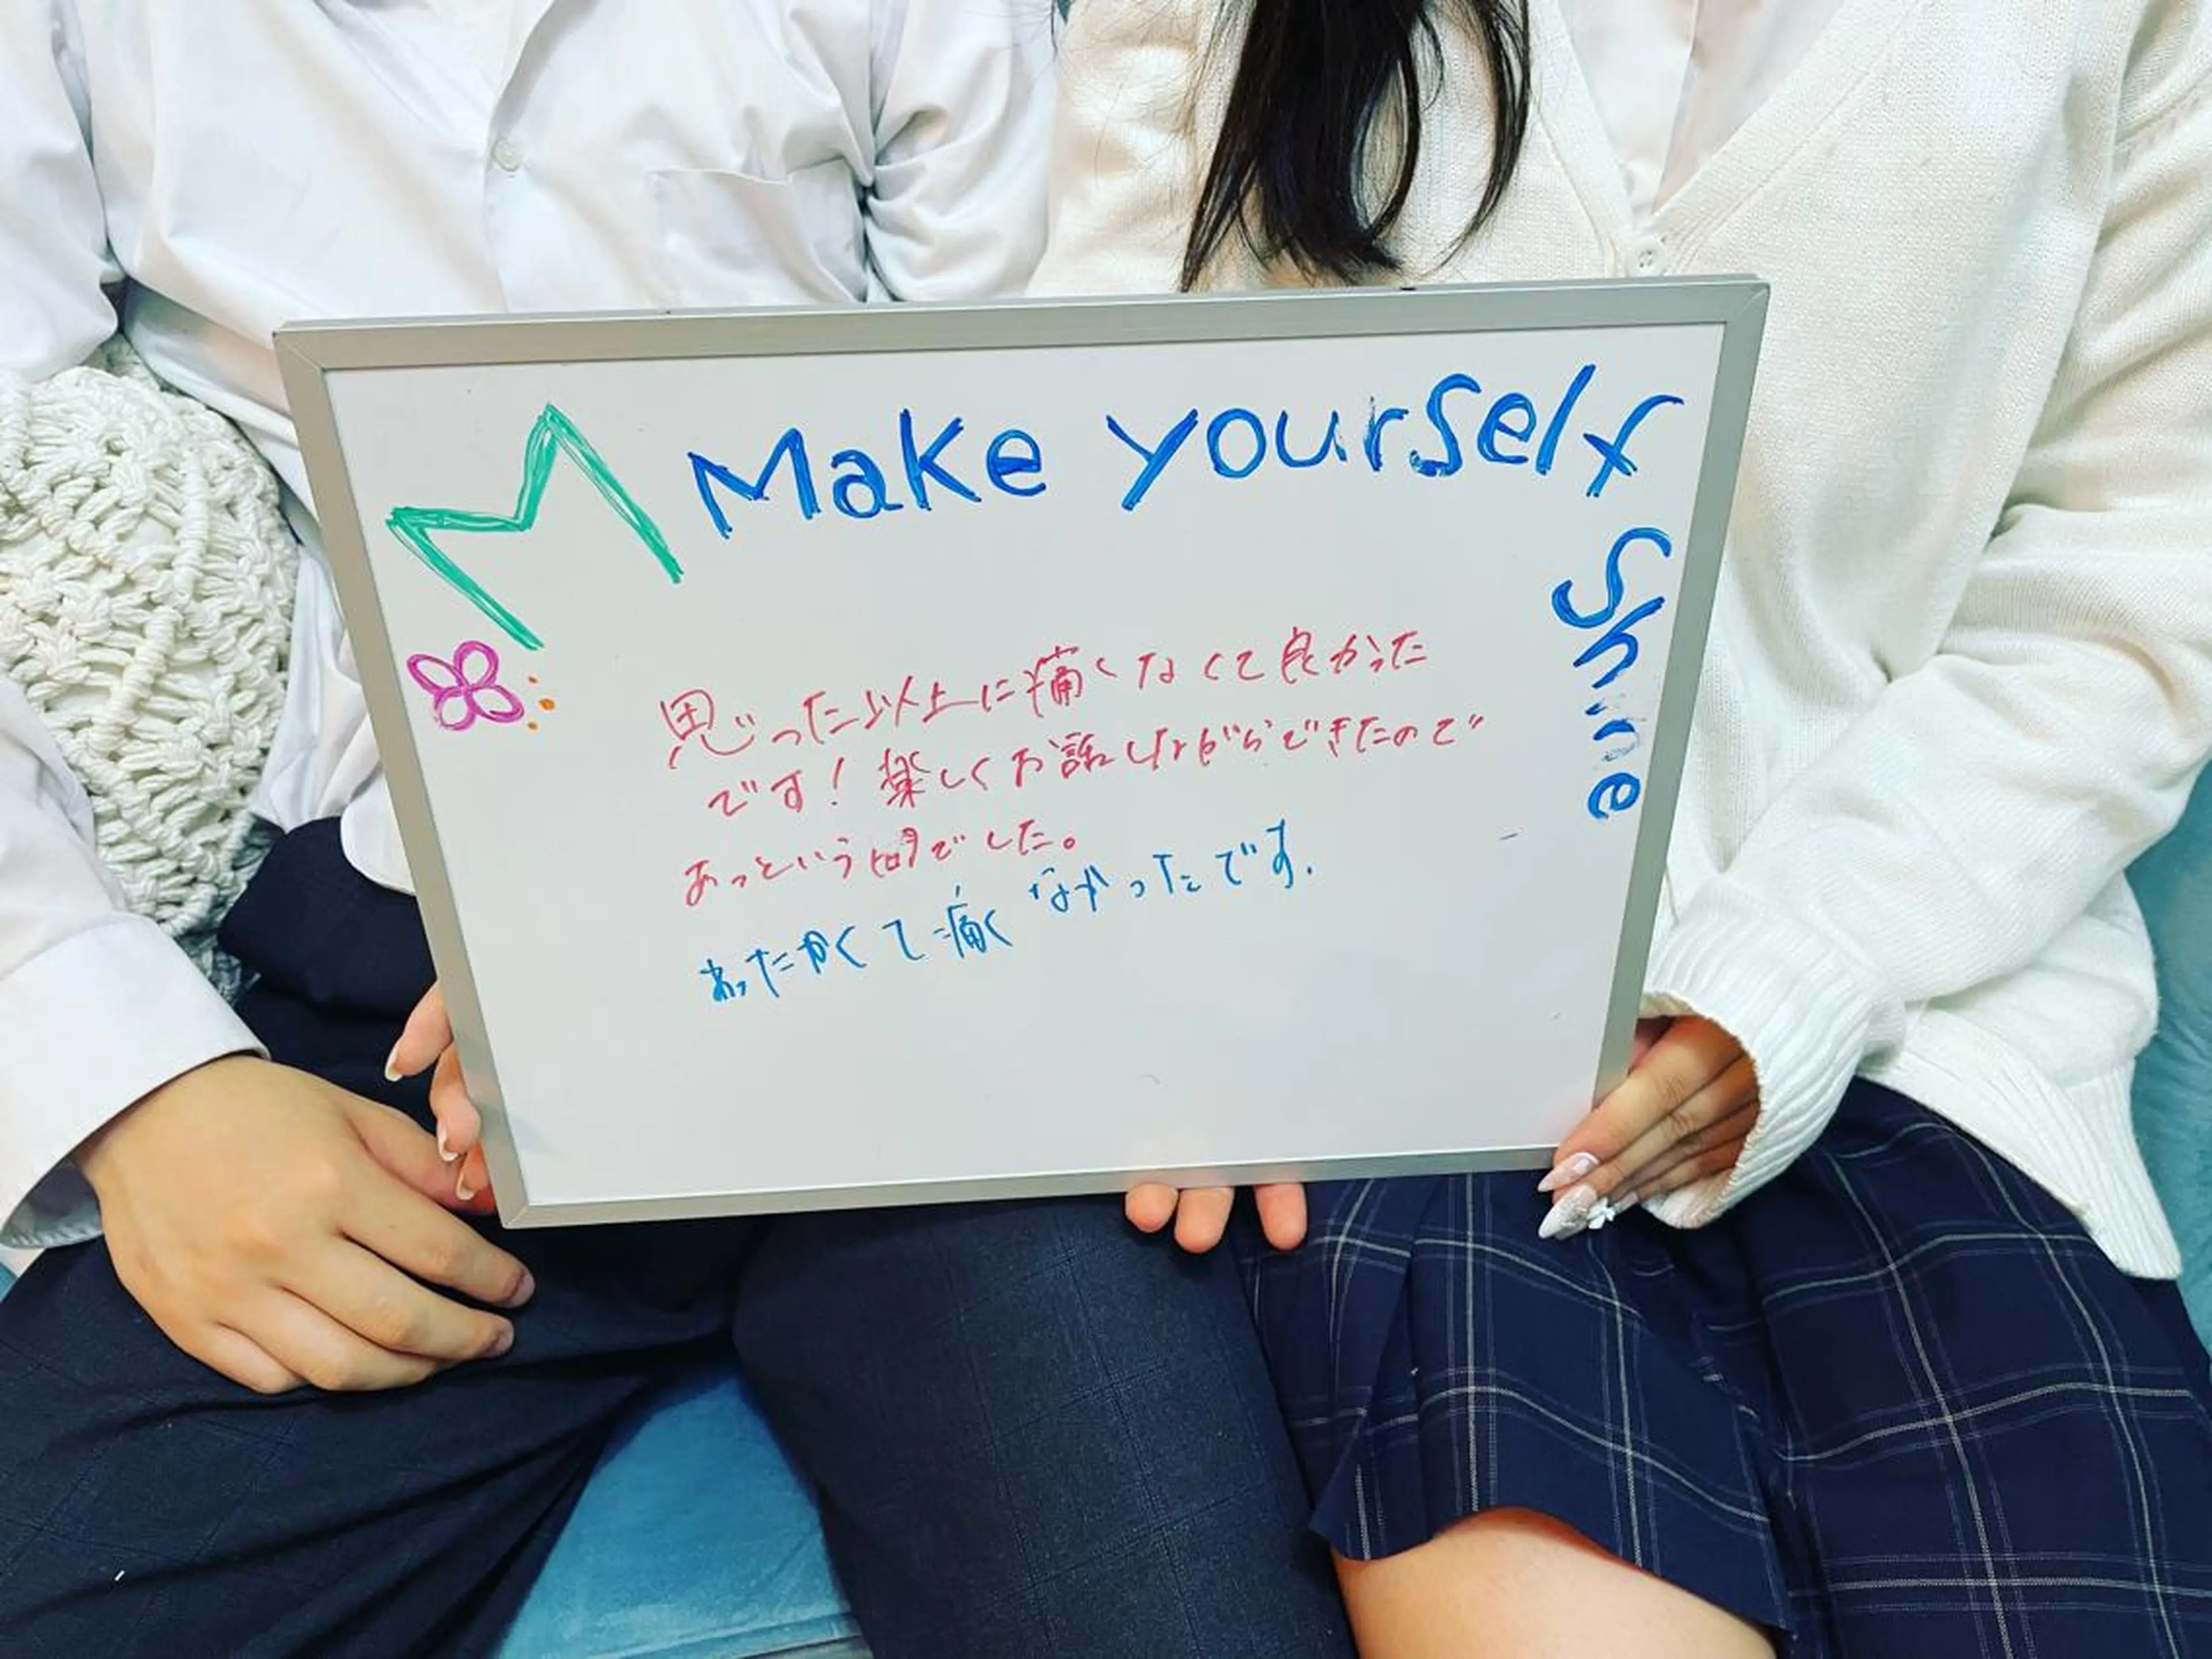 Make yourself
Shine
思った以上に痛くなくて良かった
です！楽しくお話しながらできたので
あっという間でした。
あったかくて痛くなかったです.